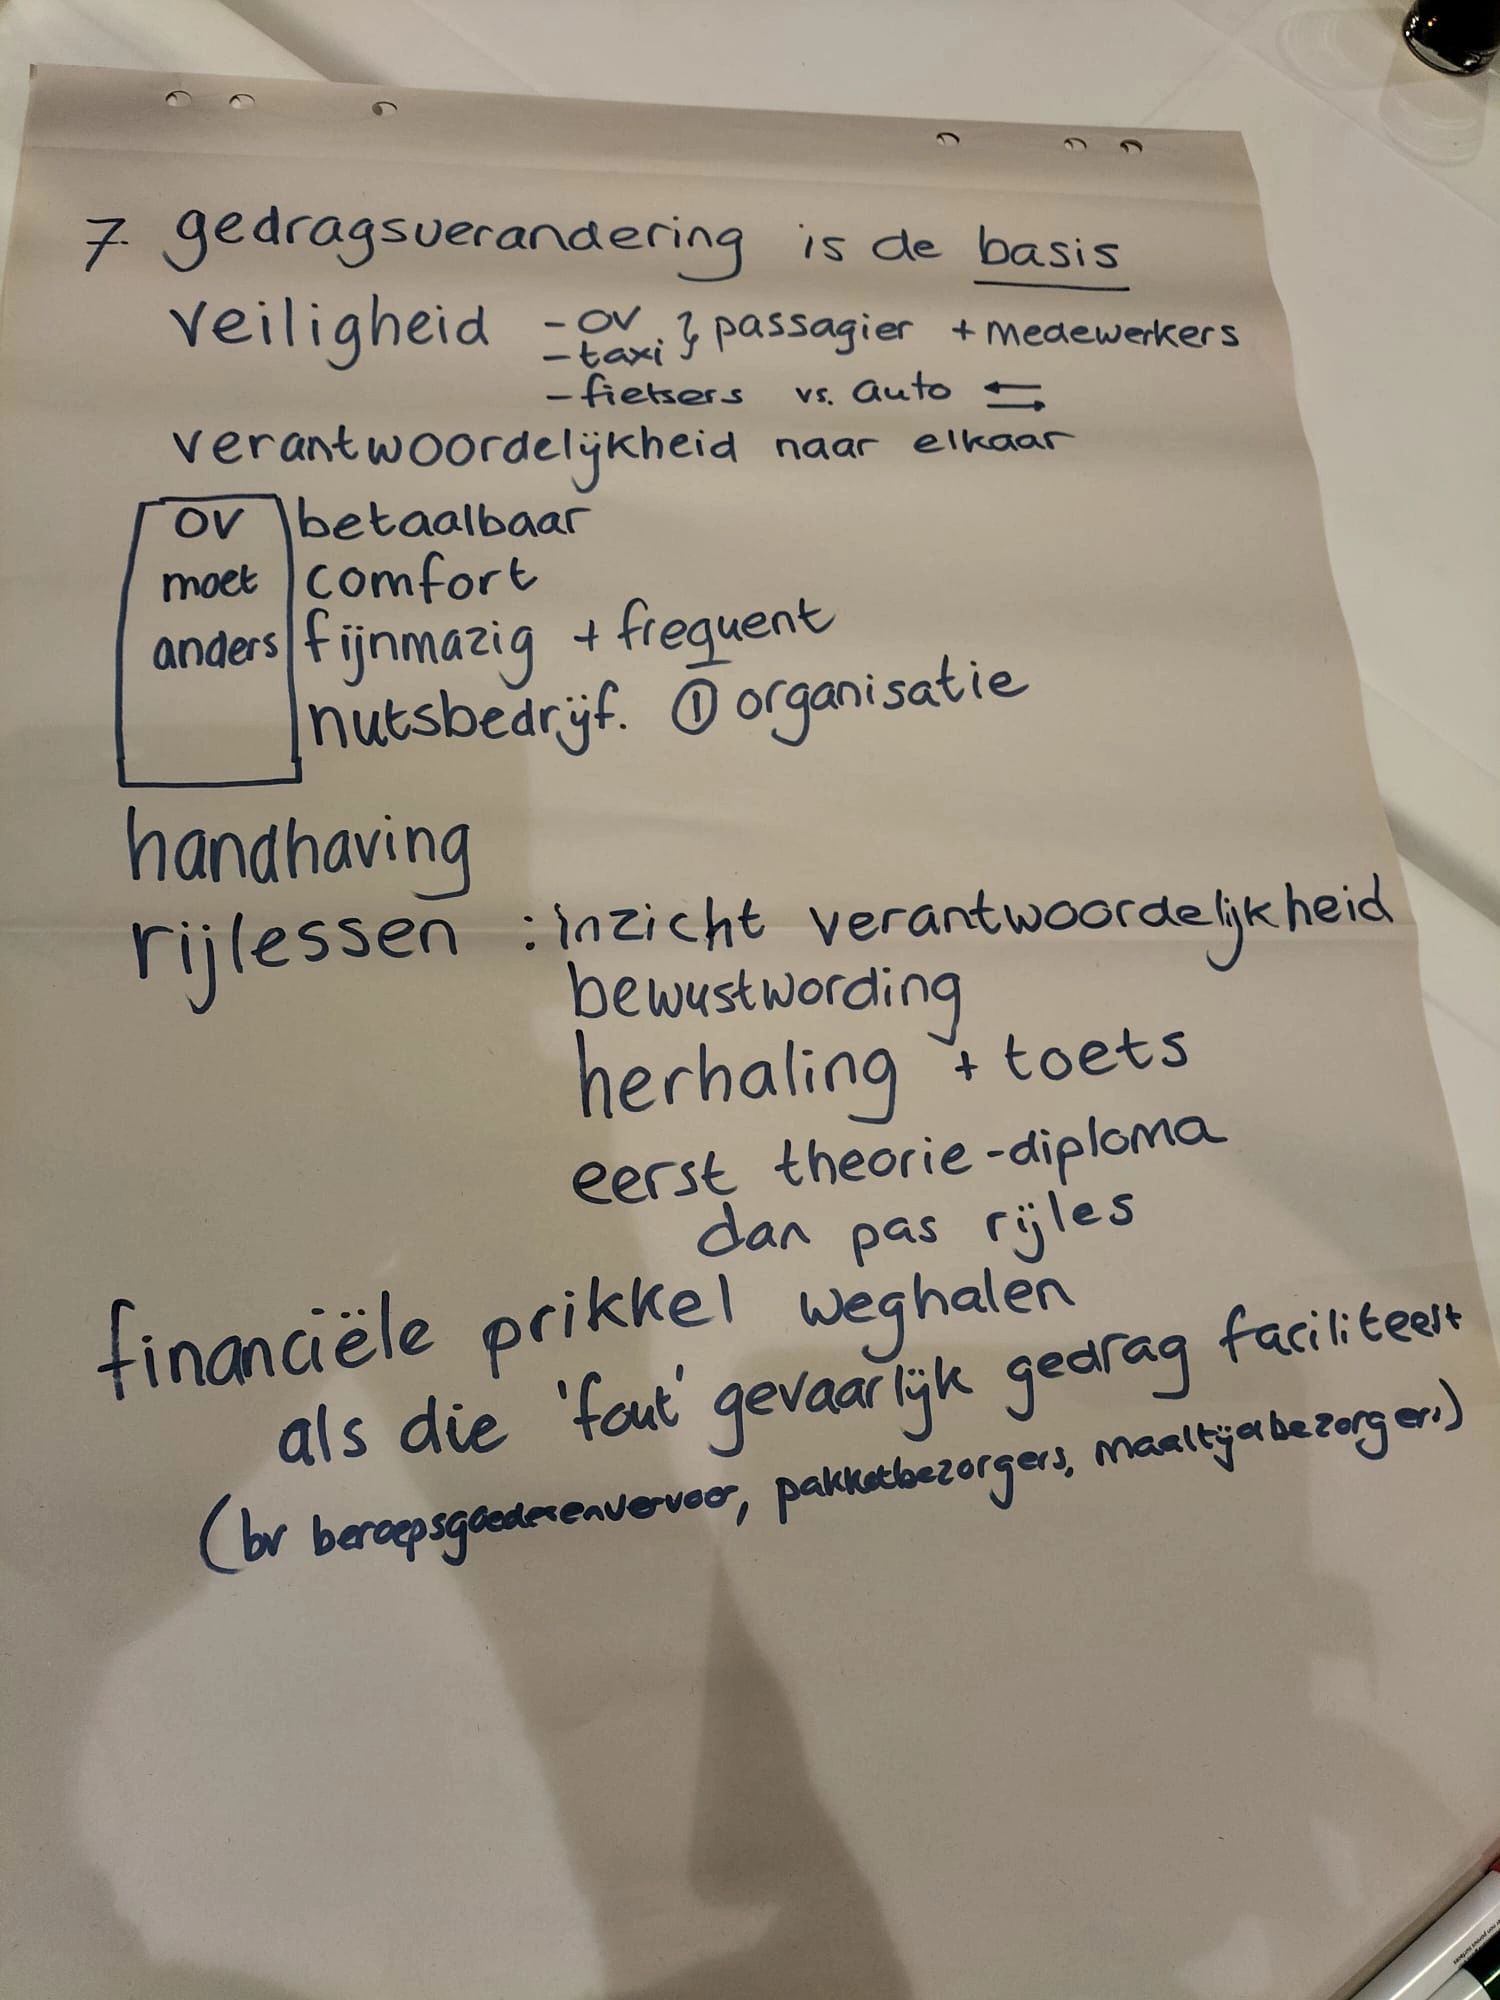 7. gedragsverandering is de basis
veiligheid - OV } passagier + medewerkers
- taxi
- fietsers vs. auto ⇆
verantwoordelijkheid naar elkaar
OV betaalbaar
moet comfort
anders fijnmazig + frequent
nutsbedrijf. ① organisatie
handhaving
rijlessen : inzicht verantwoordelijkheid
bewustwording
herhaling + toets
eerst theorie-diploma
dan pas rijles
financiële prikkel weghalen
als die 'fout' gevaarlijk gedrag faciliteert
(bv beroepsgoederenvervoer, pakketbezorgers, maaltijdbezorgers)